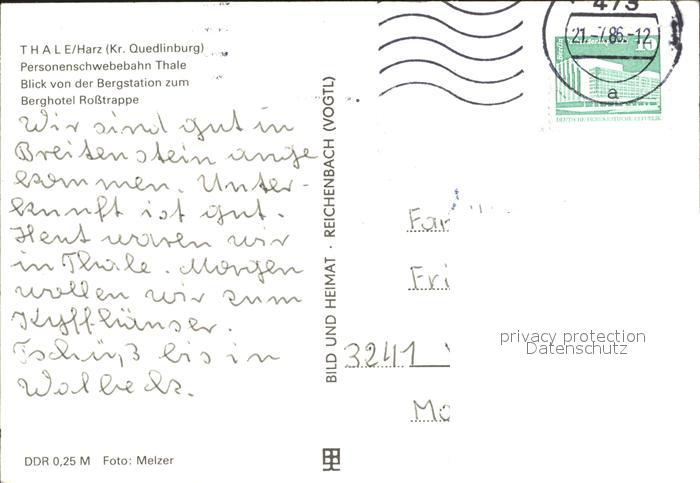 THALE/Harz (Kr. Quedlinburg)
Personenschwebebahn Thale
Blick von der Bergstation zum
Berghotel Roßtrappe
Wir sind gut in
Breitenstein ange
kommen. Unter-
kunft ist gut.
Heut waren wir
in Thale. Morgen
wollen wir zum
Kyffhäuser.
Tschüß bis in
Walbeck.
DDR 0,25 M Foto: Melzer
BILD UND HEIMAT · REICHENBACH (VOGTL)
473
21.-7.86-12
a
10
DEUTSCHE DEMOKRATISCHE REPUBLIK
Fam
Fri
3241
privacy protection
Datenschutz